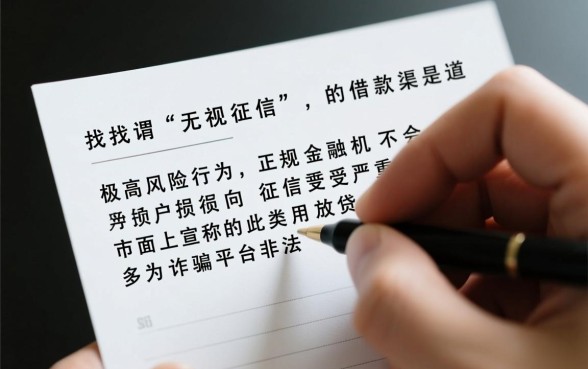 找找谓“无视征信”，的借款渠是道
极高风险行为，正规金融机 不会
户损很向 征信受受严重
市面上宣称的此类用放贷
多为诈骗平台非法